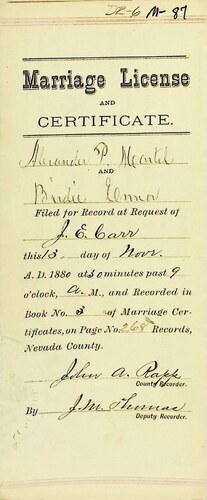 DR-6 M-87
Marriage License
AND
CERTIFICATE.
Alexander P.
AND
Birdie
Filed for Record at Request of
J. E. Carr
this 13 day of Novr.
A. D. 1880 at 30 minutes past 9
o'clock, A. M., and Recorded in
Book No. 3 of Marriage Cer-
tificates, on Page No. 268 Records,
Nevada County.
John A. Rapp
County Recorder.
By J. M. Thomas
Deputy Recorder.